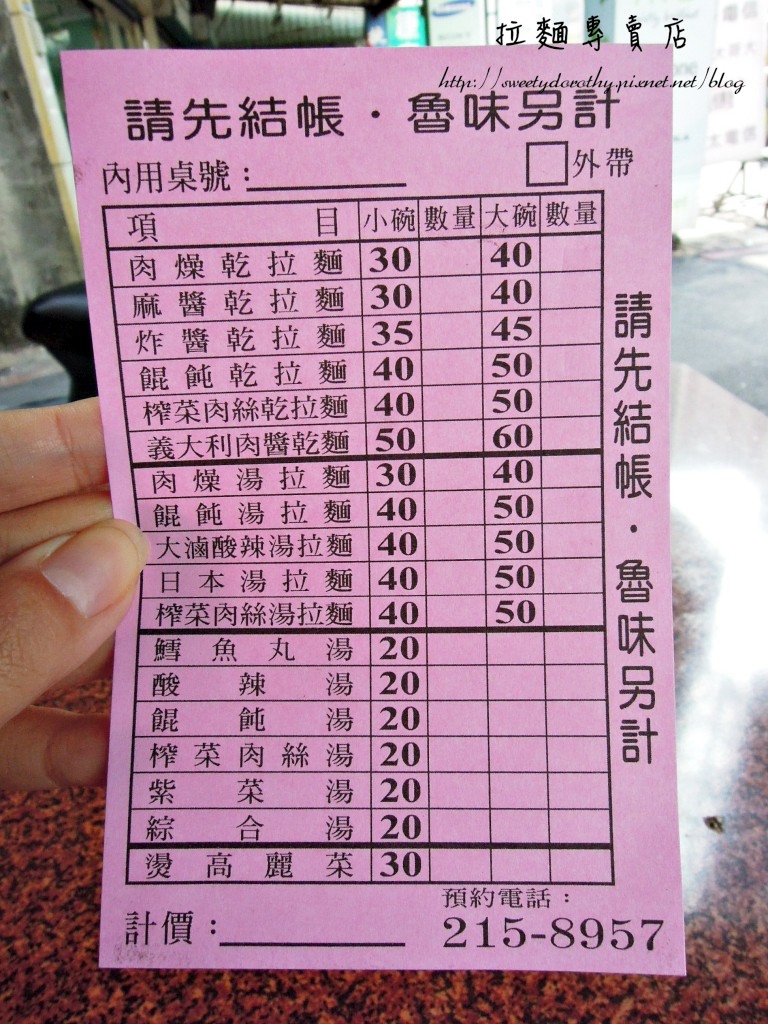 拉麵專賣店
http://sweetydorothy.pixnet.net/blog
請先結帳・魯味另計
內用桌號：
外帶
項目 小碗 數量 大碗 數量
肉燥乾拉麵 30 40
麻醬乾拉麵 30 40
炸醬乾拉麵 35 45
餛飩乾拉麵 40 50
榨菜肉絲乾拉麵 40 50
義大利肉醬乾麵 50 60
肉燥湯拉麵 30 40
餛飩湯拉麵 40 50
大滷酸辣湯拉麵 40 50
日本湯拉麵 40 50
榨菜肉絲湯拉麵 40 50
鱈魚丸湯 20
酸辣湯 20
餛飩湯 20
榨菜肉絲湯 20
紫菜湯 20
綜合湯 20
燙高麗菜 30
請先結帳・魯味另計
計價：
預約電話：
215-8957